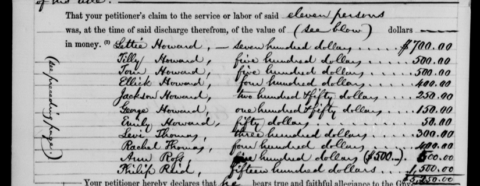 That your petitioner's claim to the service or labor of said eleven persons
was, at the time of said discharge therefrom, of the value of (see blow) dollars
in money. (3) Lettie Howard, — seven hundred dollars . . . . . $700.00
Tilly Howard, five hundred dollars . . . . . 500.00
Tom Howard, five hundred dollars . . . . . 500.00
Ellick Howard, four hundred dollars . . . . . 400.00
Jackson Howard, two hundred & fifty dollars . . . . 250.00
George Howard, one hundred & fifty dollars . . . . 150.00
Emily Howard, fifty dollars . . . . . 50.00
Levi Thomas, three hundred dollars . . . . . 300.00
Rachel Thomas, four hundred dollars . . . . . 400.00
Ann Ross, hundred dollars ($500—) 500.00
Philip Reid, fifteen hundred dollars . . . . 1,500.00
Your petitioner hereby declares that he bears true and faithful allegiance to the
(see preceding page)